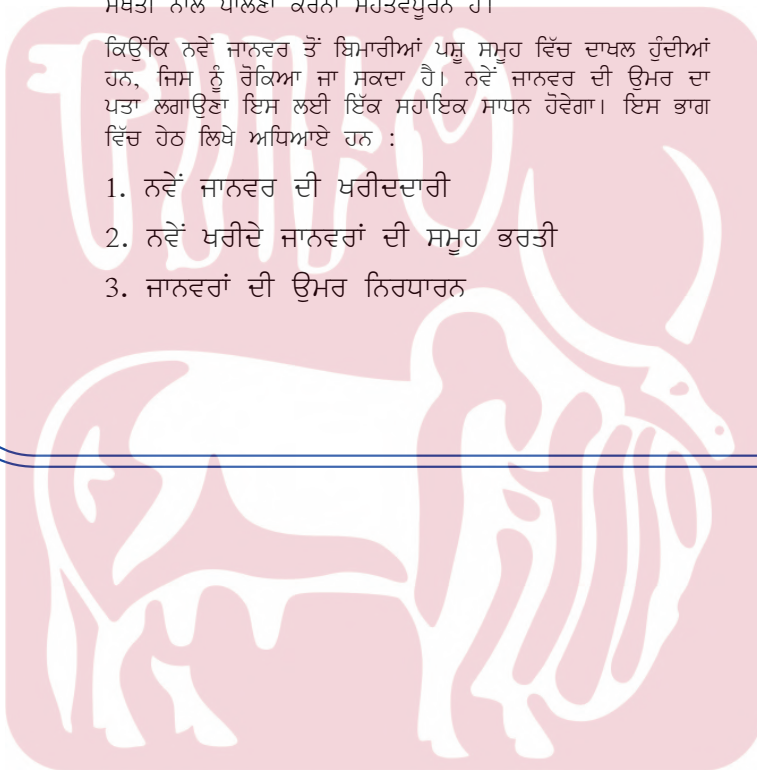 ਸਖਤੀ ਨਾਲ ਪਾਲਣਾ ਕਰਨਾ ਮਹੱਤਵਪੂਰਨ ਹੈ।
ਕਿਉਂਕਿ ਨਵੇਂ ਜਾਨਵਰ ਤੋਂ ਬਿਮਾਰੀਆਂ ਪਸ਼ੂ ਸਮੂਹ ਵਿੱਚ ਦਾਖਲ ਹੁੰਦੀਆਂ
ਹਨ, ਜਿਸ ਨੂੰ ਰੋਕਿਆ ਜਾ ਸਕਦਾ ਹੈ। ਨਵੇਂ ਜਾਨਵਰ ਦੀ ਉਮਰ ਦਾ
ਪਤਾ ਲਗਾਉਣਾ ਇਸ ਲਈ ਇੱਕ ਸਹਾਇਕ ਸਾਧਨ ਹੋਵੇਗਾ। ਇਸ ਭਾਗ
ਵਿੱਚ ਹੇਠ ਲਿਖੇ ਅਧਿਆਏ ਹਨ :
1. ਨਵੇਂ ਜਾਨਵਰ ਦੀ ਖਰੀਦਦਾਰੀ
2. ਨਵੇਂ ਖਰੀਦੇ ਜਾਨਵਰਾਂ ਦੀ ਸਮੂਹ ਭਰਤੀ
3. ਜਾਨਵਰਾਂ ਦੀ ਉਮਰ ਨਿਰਧਾਰਨ